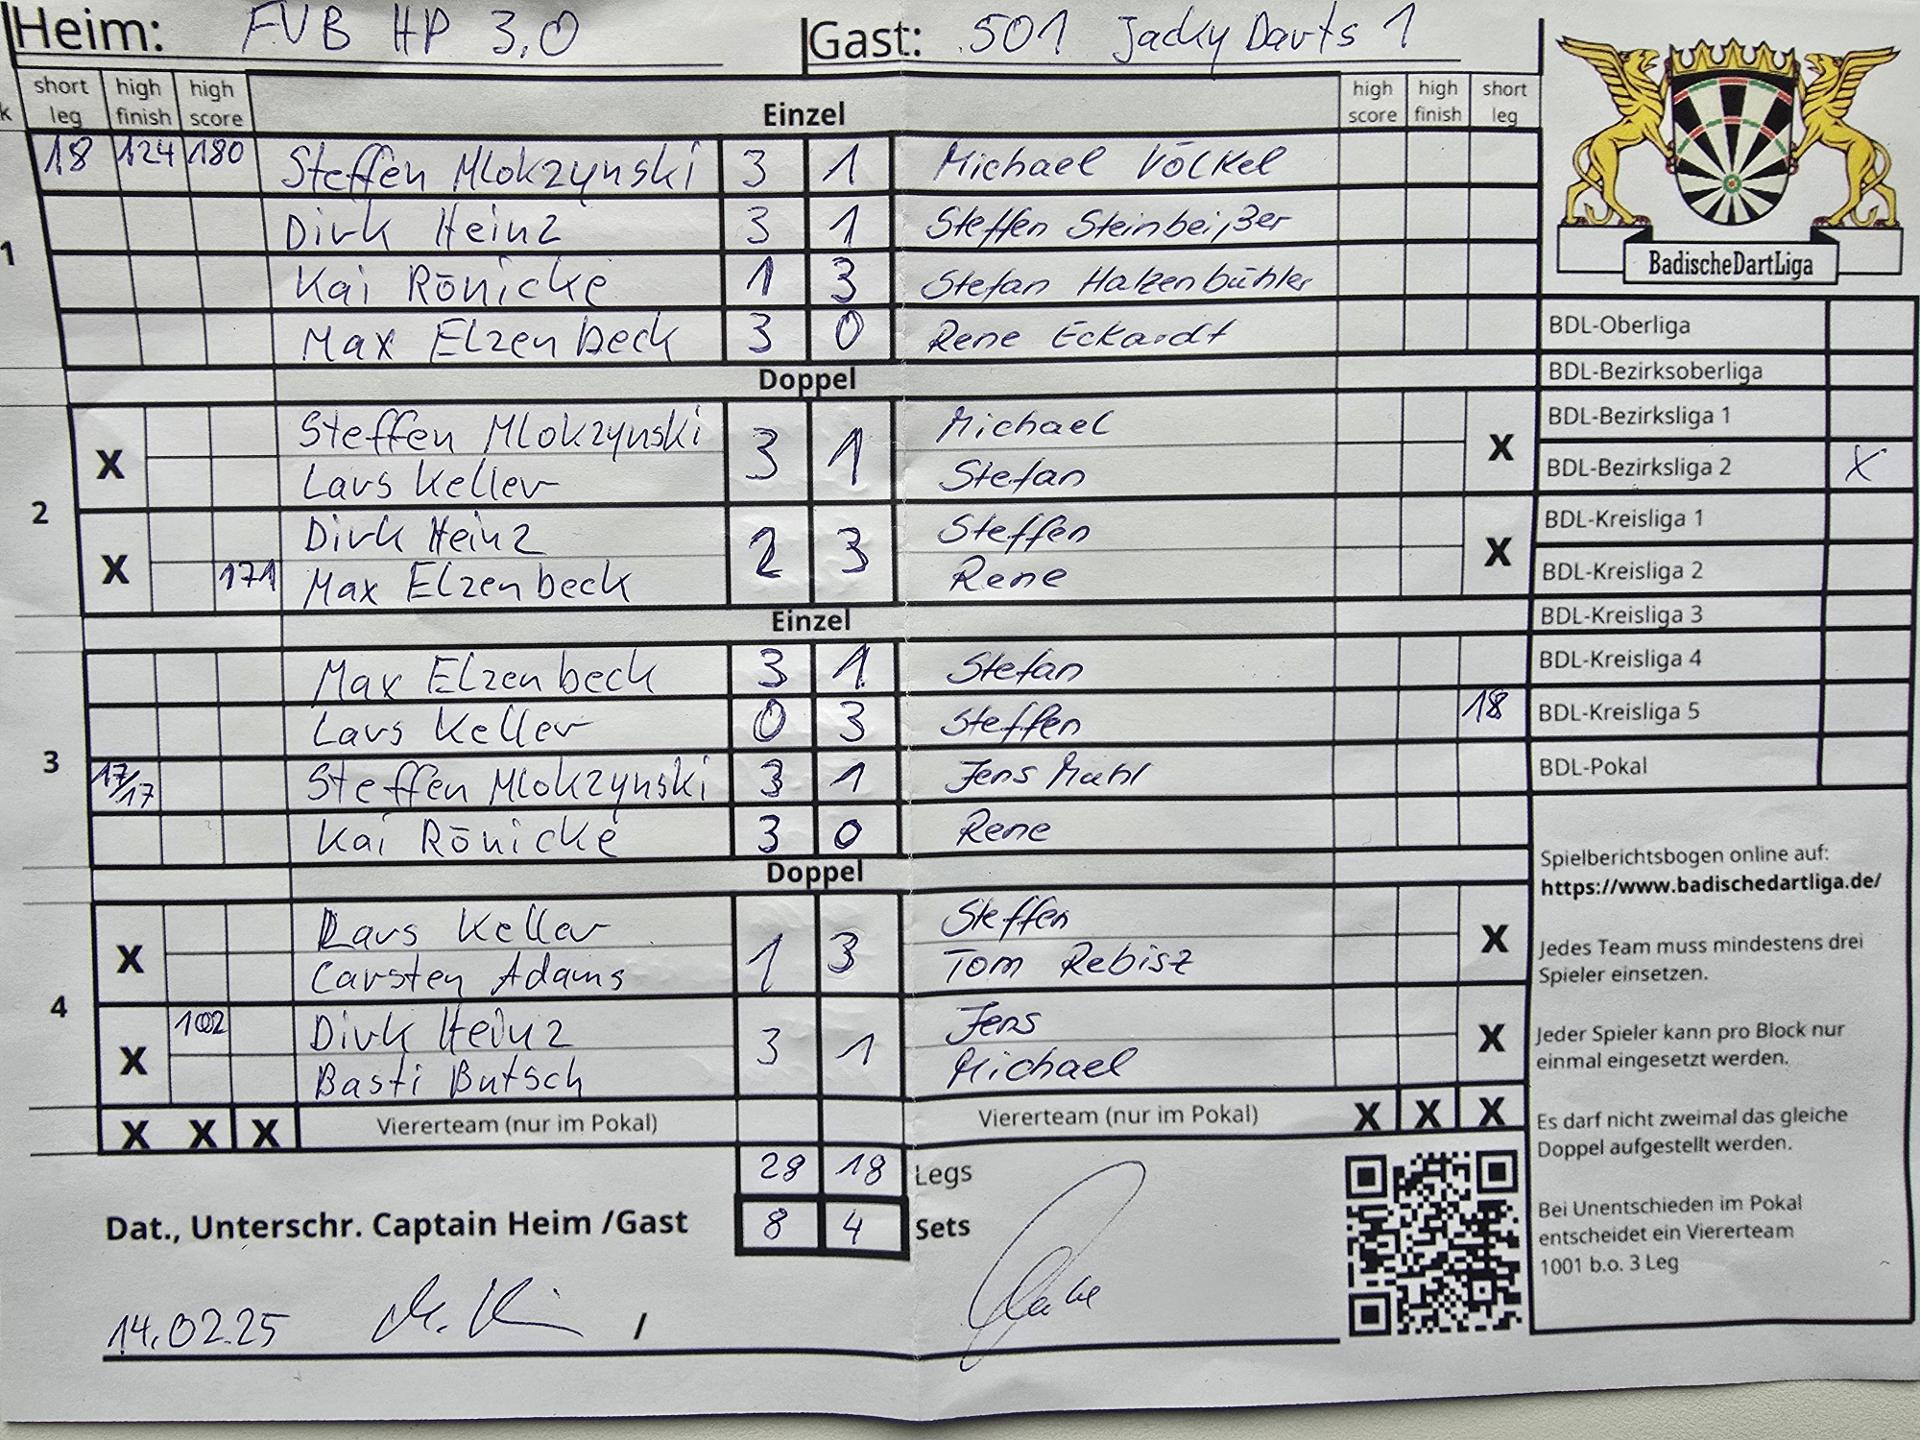 Heim: FVB HP 3,0 Gast: 501 Jacky Darts 1
short leg high finish high score Einzel high score high finish short leg
1
18 124 180 Steffen Mlokzynski 3 1 Michael Völkel
Dirk Heinz 3 1 Steffen Steinbeißer
Kai Rönicke 1 3 Stefan Hatzenbühler
Max Elzenbeck 3 0 Rene Eckardt
Doppel
2
X Steffen Mlokzynski 3 1 Michael X
Lars Keller Stefan
X Dirk Heinz 2 3 Steffen X
171 Max Elzenbeck Rene
Einzel
3
Max Elzenbeck 3 1 Stefan
Lars Keller 0 3 Steffen 18
17/17 Steffen Mlokzynski 3 1 Jens Mahl
Kai Rönicke 3 0 Rene
Doppel
4
X Lars Keller 1 3 Steffen X
Carsten Adams Tom Rebisz
X 102 Dirk Heinz 3 1 Jens X
Basti Butsch Michael
X X X Viererteam (nur im Pokal) Viererteam (nur im Pokal) X X X
28 18 Legs
Dat., Unterschr. Captain Heim /Gast 8 4 Sets
14.02.25 /
BadischeDartLiga
BDL-Oberliga
BDL-Bezirksoberliga
BDL-Bezirksliga 1
BDL-Bezirksliga 2 X
BDL-Kreisliga 1
BDL-Kreisliga 2
BDL-Kreisliga 3
BDL-Kreisliga 4
BDL-Kreisliga 5
BDL-Pokal
Spielberichtsbogen online auf:
https://www.badischedartliga.de/
Jedes Team muss mindestens drei
Spieler einsetzen.
Jeder Spieler kann pro Block nur
einmal eingesetzt werden.
Es darf nicht zweimal das gleiche
Doppel aufgestellt werden.
Bei Unentschieden im Pokal
entscheidet ein Viererteam
1001 b.o. 3 Leg